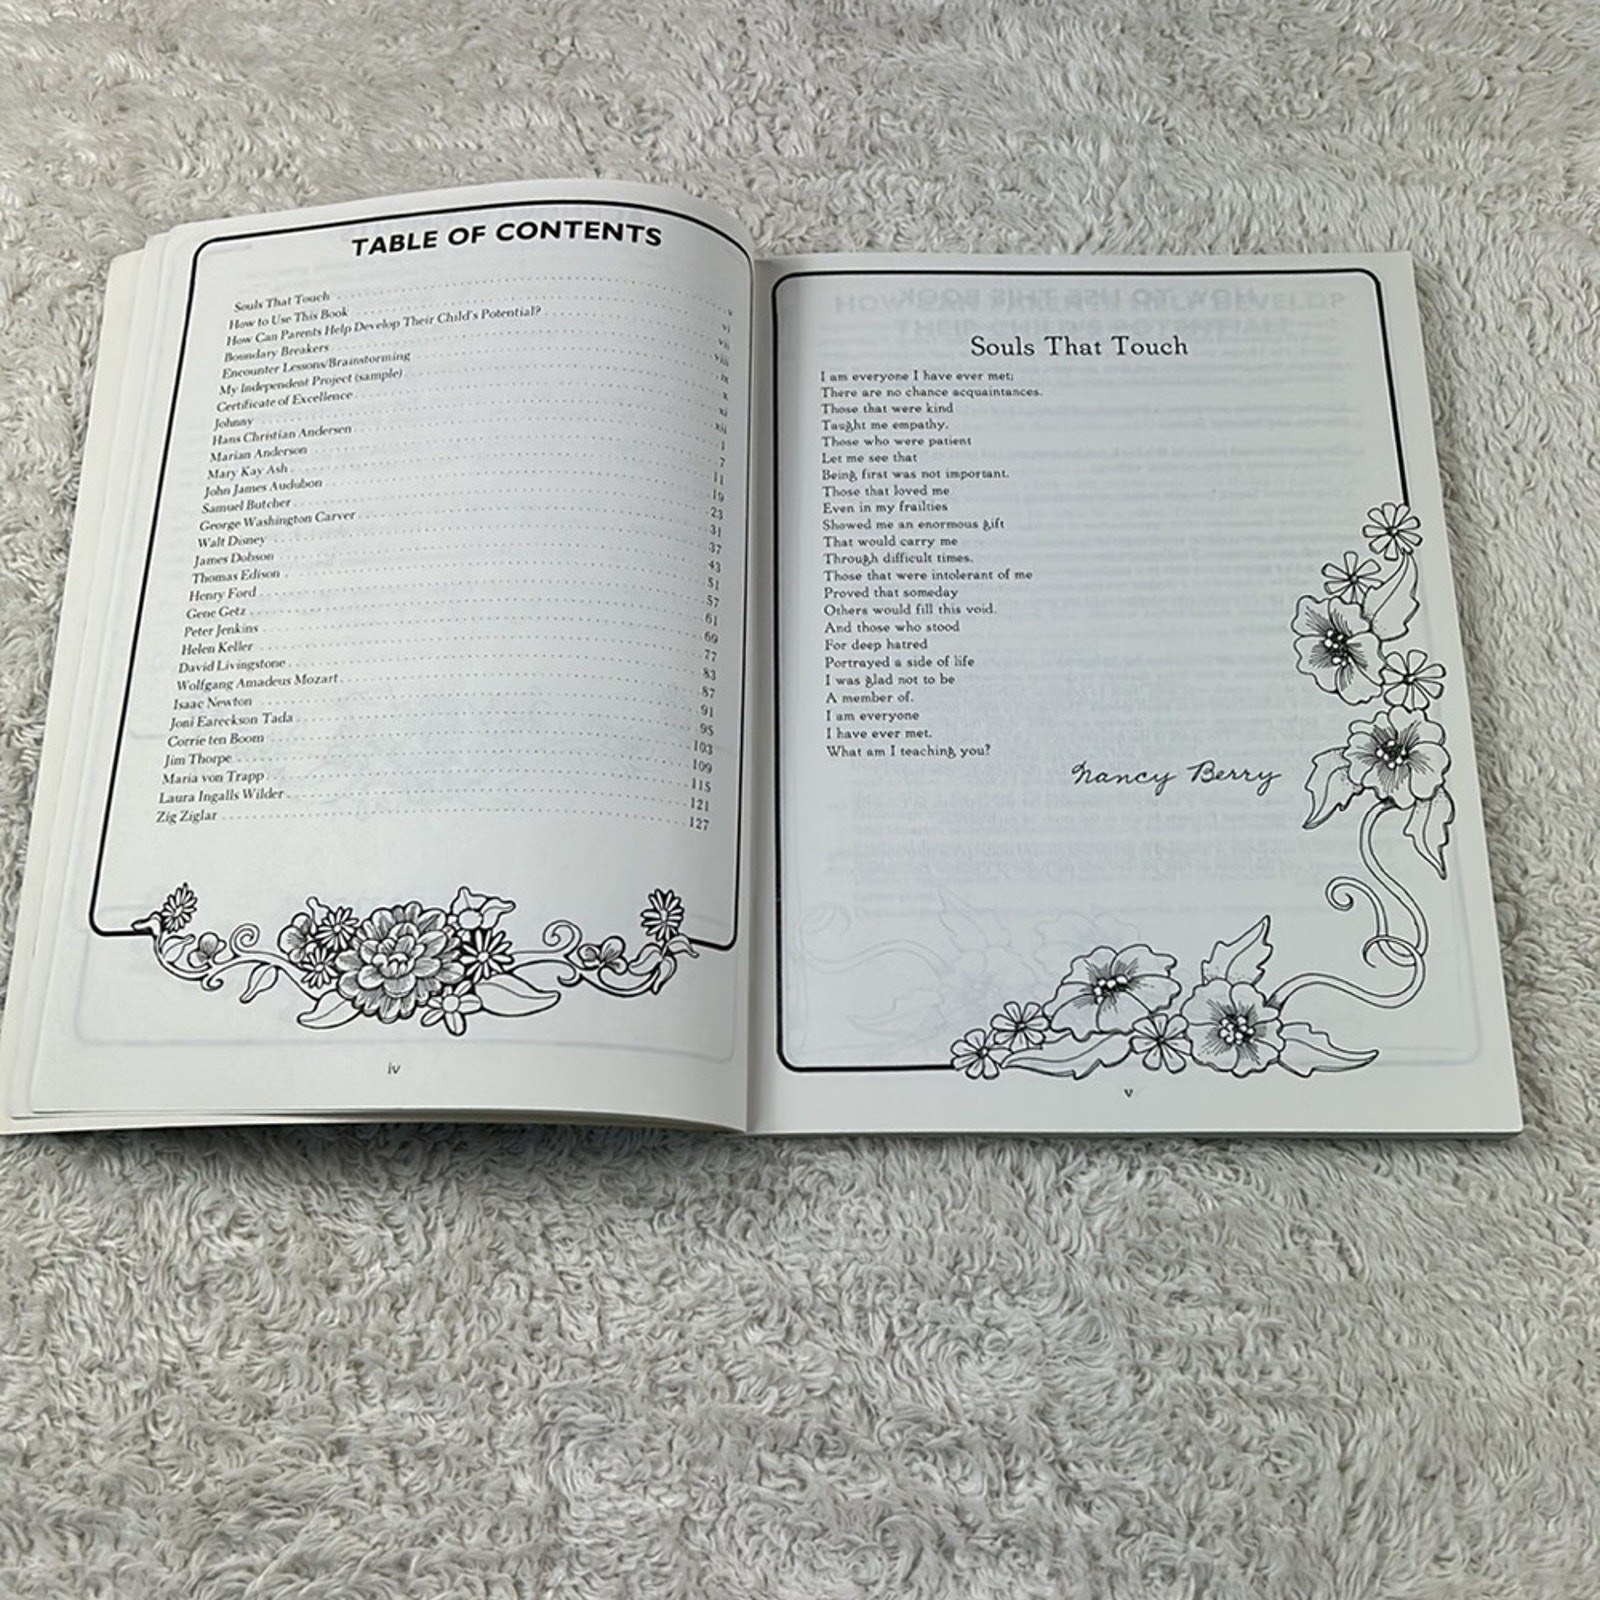 TABLE OF CONTENTS
Souls That Touch v
How to Use This Book vi
How Can Parents Help Develop Their Child's Potential? vii
Boundary Breakers viii
Encounter Lessons/Brainstorming ix
My Independent Project (sample) x
Certificate of Excellence xi
Johnny xii
Hans Christian Andersen 1
Marian Anderson 7
Mary Kay Ash 11
John James Audubon 19
Samuel Butcher 23
George Washington Carver 31
Walt Disney 37
James Dobson 43
Thomas Edison 51
Henry Ford 57
Gene Getz 61
Peter Jenkins 69
Helen Keller 77
David Livingstone 83
Wolfgang Amadeus Mozart 87
Isaac Newton 91
Joni Eareckson Tada 95
Corrie ten Boom 103
Jim Thorpe 109
Maria von Trapp 115
Laura Ingalls Wilder 121
Zig Ziglar 127
iv
Souls That Touch
I am everyone I have ever met;
There are no chance acquaintances.
Those that were kind
Taught me empathy.
Those who were patient
Let me see that
Being first was not important.
Those that loved me
Even in my frailties
Showed me an enormous gift
That would carry me
Through difficult times.
Those that were intolerant of me
Proved that someday
Others would fill this void.
And those who stood
For deep hatred
Portrayed a side of life
I was glad not to be
A member of.
I am everyone
I have ever met.
What am I teaching you?
Nancy Berry
v